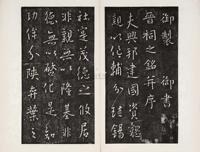 御製 御書
晉祠之銘并序
夫興邦建國資懿
親以作輔分珪錫
社寔茂德之攸居
非親無以隆基非
德無以啓化是知
功侔分陝奕葉之